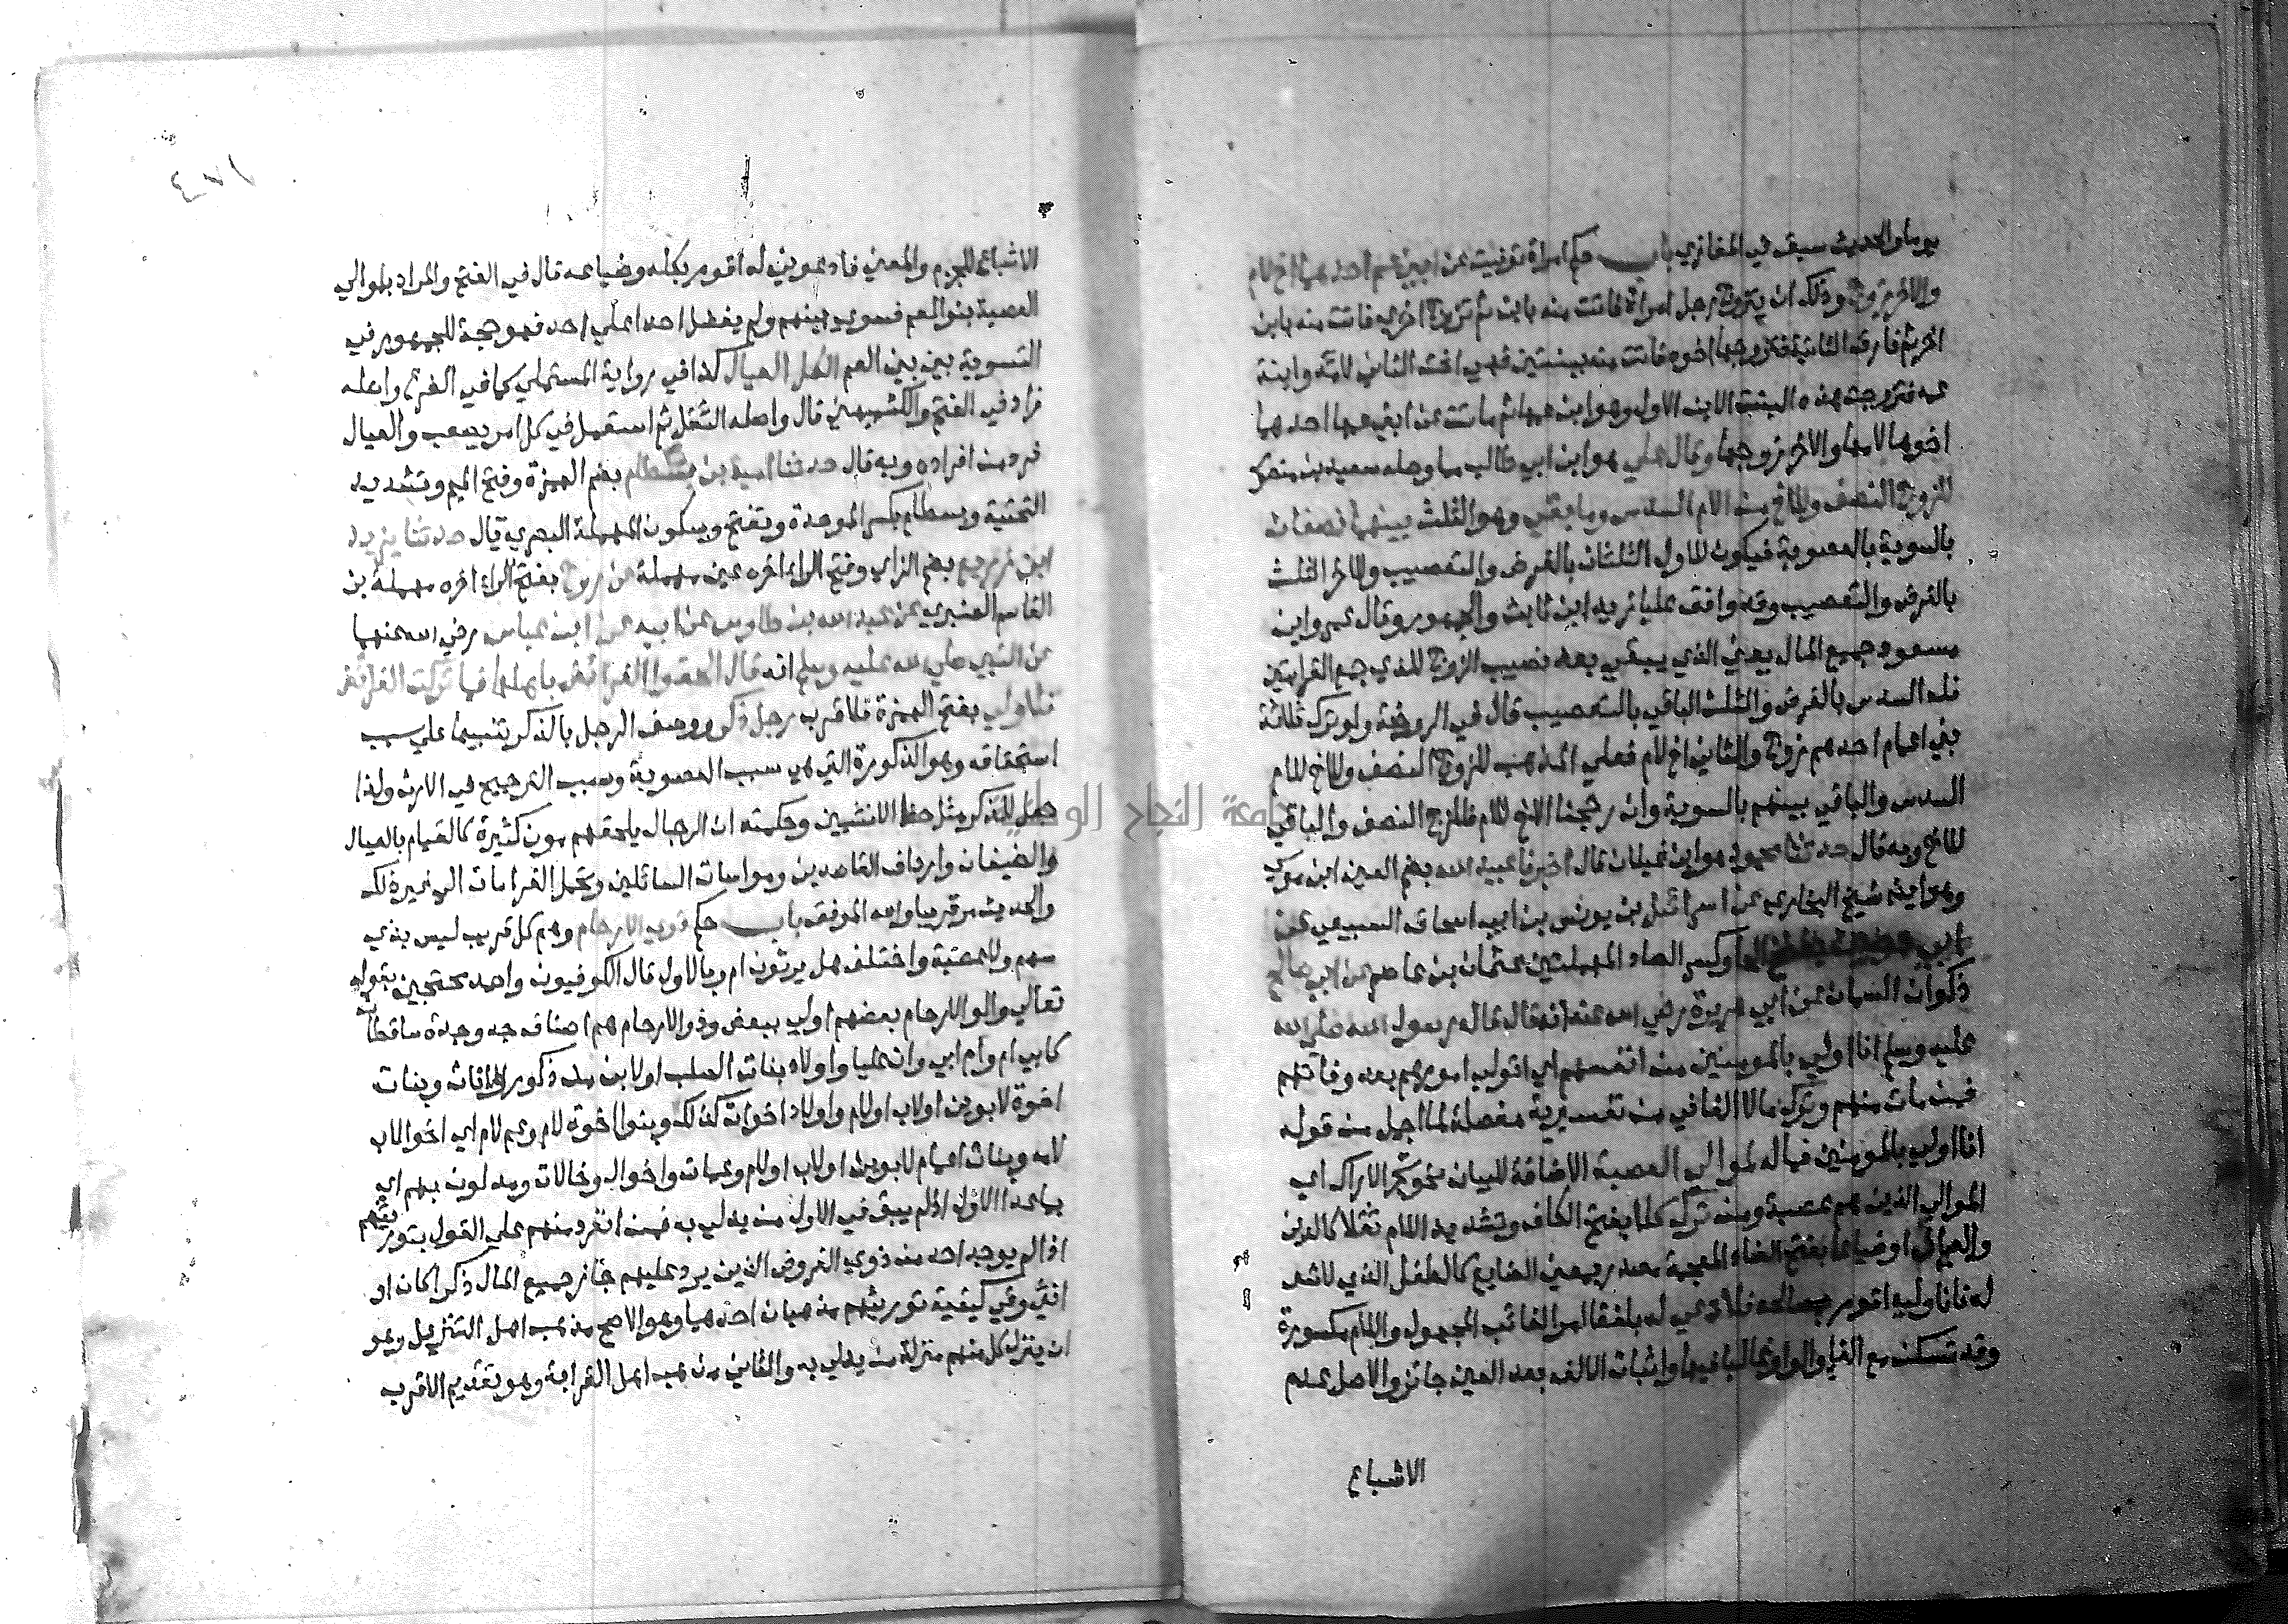 يوما والحديث سبق في المغازي باب حكم امراة توفيت عن ابني عم احدهما اخ لام
والاخر زوج وذلك ان يتزوج رجل امراة فاتت منه بابن ثم تزوج اخري فاتت منه بابن
اخر ثم فارق الثانية فتزوجها اخوه فاتت منه ببنتين فهي اخت الثاني لامه وابنة
عمه فتزوجت هذه البنت الابن الاول وهو ابن عمها ثم ماتت عن ابني عمها احدهما
اخوها لامها والاخر زوجها وقال علي هو ابن ابي طالب مما وصله سعيد بن منصور
للزوج النصف وللاخ من الام السدس وما بقي وهو الثلث بينهما نصفان
بالسوية بالعصوبة فيكون للاول الثلثان بالفرض والتعصيب وللاخر الثلث
بالفرض والتعصيب وقد وافق عليا زيد ابن ثابت والجمهور وقال عمر وابن
مسعود جميع المال يعني الذي يبقي بعد نصيب الزوج للذي جمع القرابتين
فله السدس بالفرض والثلث الباقي بالتعصيب قال في الروضة ولو ترك ثلاثة
بني اعمام احدهم زوج والثاني اخ لام فعلي المذهب للزوج النصف وللاخ للام
السدس والباقي بينهم بالسوية وان رجحنا الاخ للام فللزوج النصف والباقي
للاخ وبه قال حدثنا محمود هو ابن غيلان قال اخبرنا عبيد الله بضم العين ابن موسي
وهو ايضا شيخ البخاري عن اسرائيل بن يونس بن ابي اسحاق السبيعي عن
ابي حصين بفتح الحا وكسر الصاد المهملتين عثمان بن عاصم عن ابي صالح
ذكوان السمان عن ابي هريرة رضي الله عنه انه قال قال رسول الله صلي الله
عليه وسلم انا اولي بالمومنين من انفسهم اي اتولي امورهم بعد وفاتهم
فمن مات منهم وترك مالا الفا في من تفسيرية مفصلة لما اجمل من قوله
انا اولي بالمومنين فماله لموالي العصبة الاضافة للبيان نحو شجر الاراك اي
الموالي الذين هم عصبة ومن ترك كلا بفتح الكاف وتشديد اللام ثقلا كالدين
والعيال او ضياعا بفتح الضاد المعجمة مصدر بمعني الضايع كالطفل الذي لاشي
له فانا وليه اتور بمصالحه فلادعي له بلفظ امر الغائب المجهول واللام مكسورة
وقد تسكن مع الفا والواو غالبا فيهما واثبات الالف بعد العين جائز والاصل عدم
الاشباع
الاشباع للجزم والمعني فادعوني له اقوم بكله وضياعه قال في الفتح والمراد بالموالي
العصبة بنو العم فسوي بينهم ولم يفضل احدا علي احد فهو حجة للجمهور في
التسوية بين بني العم الكل العيال كذا في رواية المستملي كما في الفرع واصله
زاد في الفتح والكشميهني قال واصله الثقل ثم استعمل في كل امر يصعب والعيال
فرد من افراده وبه قال حدثنا امية بن بسطام بضم الهمزة وفتح الميم وتشديد
التحتية وبسطام بكسر الموحدة وتفتح وسكون المهملة البصري قال حدثنا يزيد
ابن زريع بضم الزاي وفتح الراء اخره عين مهملة عن روح بفتح الراء اخره مهملة بن
القاسم العنبري عن عبد الله بن طاوس عن ابيه عن ابن عباس رضي الله عنهما
عن النبي صلي الله عليه وسلم انه قال الحقوا الفرائض باهلها فما تركت الفرائض
فلاولي بفتح الهمزة فلاقرب رجل ذكر ووصف الرجل بالذكر تنبيها علي سبب
استحقاقه وهو الذكورة التي هي سبب العصوبة وسبب الترجيح في الارث ولذا
جعل للذكر مثل حظ الانثيين وحكمته ان الرجال يلحقهم مون كثيرة كالقيام بالعيال
والضيفان وارفاد القاصدين ومواسات السائلين وتحمل الغرامات الي غير ذلك
والحديث مر قريبا والله الموفق باب حكم ذوي الارحام وهم كل قريب ليس بذي
سهم ولا عصبة واختلف هل يرثون ام لا وبالاول قال الكوفيون واحمد محتجين بقوله
تعالي والو الارحام بعضهم اولي ببعض وذو الارحام هم اصناف جد وجدة ساقطان
كابي ام وام ابي وان عليا واولاد بنات الصلب او لابن من ذكور او اناث وبنات
اخوة لابوين او لاب او لام واولاد اخوات كذلك وبنوا اخوة لام وعم لام اي اخو الاب
لامه وبنات اعمام لابوين او لاب او لام وعمات واخوال وخالات ومدلون بهم اي
بما عدا الاول اذ لم يبق في الاول من يدلي به فمن انفرد منهم علي القول بتوريثهم
اذا لم يوجد احد من ذوي الفروض الذين يرد عليهم حاز جميع المال ذكرا كان او
انثي وفي كيفية توريثهم مذهبان احدهما وهو الاصح مذهب اهل التنزيل وهو
ان ينزل كل منهم منزلة من يدلي به والثاني مذهب اهل القرابة وهو تقديم الاقرب
جامعة النجاح الوطنية